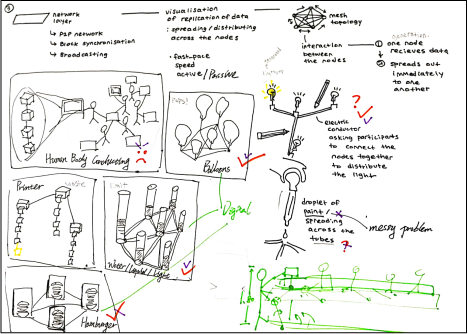 ①
network
layer
↳ P2P network
↳ Block synchronisation
↳ Broadcasting
visualisation
of replication of data
: spreading/distributing
across the nodes
• fast-pace
speed
active/Passive
mesh
topology
interaction
between
the nodes
① one node
recieves data
② spreads out
immediately
to one
another
Human Body Conducting
Balloons
Pointer
Water/Liquid/Light
Digital
Hamburger
?
electric
conductor
asking participants
to connect the
nodes together
to distribute
the light
droplet of
paint/
spreading
across the
tubes ?
messy problem